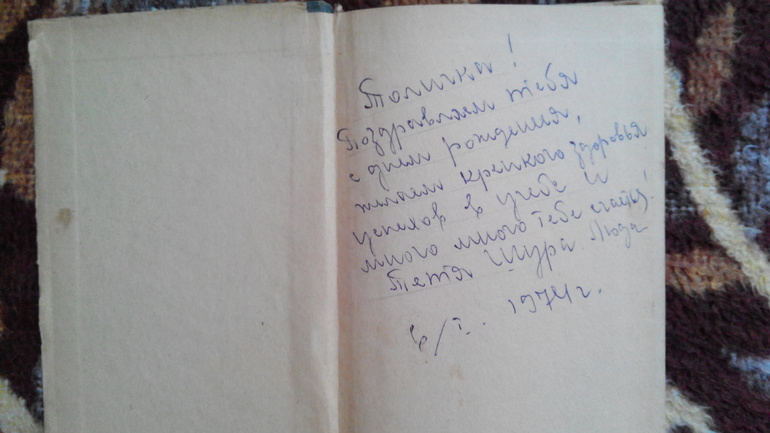 Толичка!
Поздравляем тебя
с днем рождения,
желаем крепкого здоровья
успехов в учебе и
много много тебе счастья!
Тетя Шура Люда
/I. 1974 г.